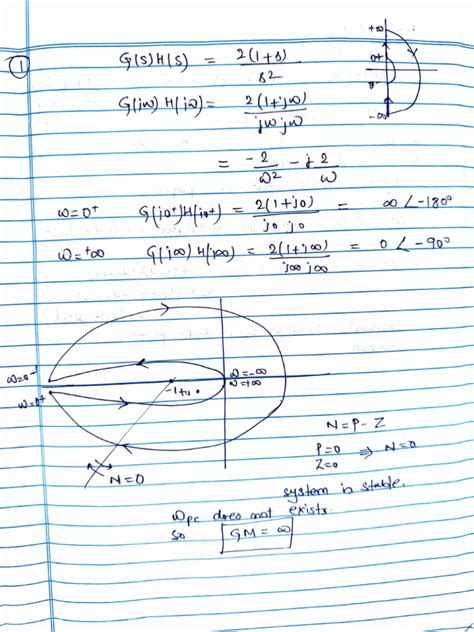 ①
G(s)H(s) = 2(1+s) / s²
+∞
0+
0-
-∞
G(jω)H(jω) = 2(1+jω) / jω jω
= -2/ω² - j 2/ω
ω=0⁺ G(j0⁺)H(j0⁺) = 2(1+j0) / j0 j0 = ∞∠-180°
ω=⁺∞ G(j∞)H(j∞) = 2(1+j∞) / j∞ j∞ = 0∠-90°
ω=0⁻
ω=0⁺
ω=-∞
ω=+∞
N=P-Z
P=0
Z=0
⇒ N=0
N=0
system is stable.
ωpc does not exists.
so GM = ∞